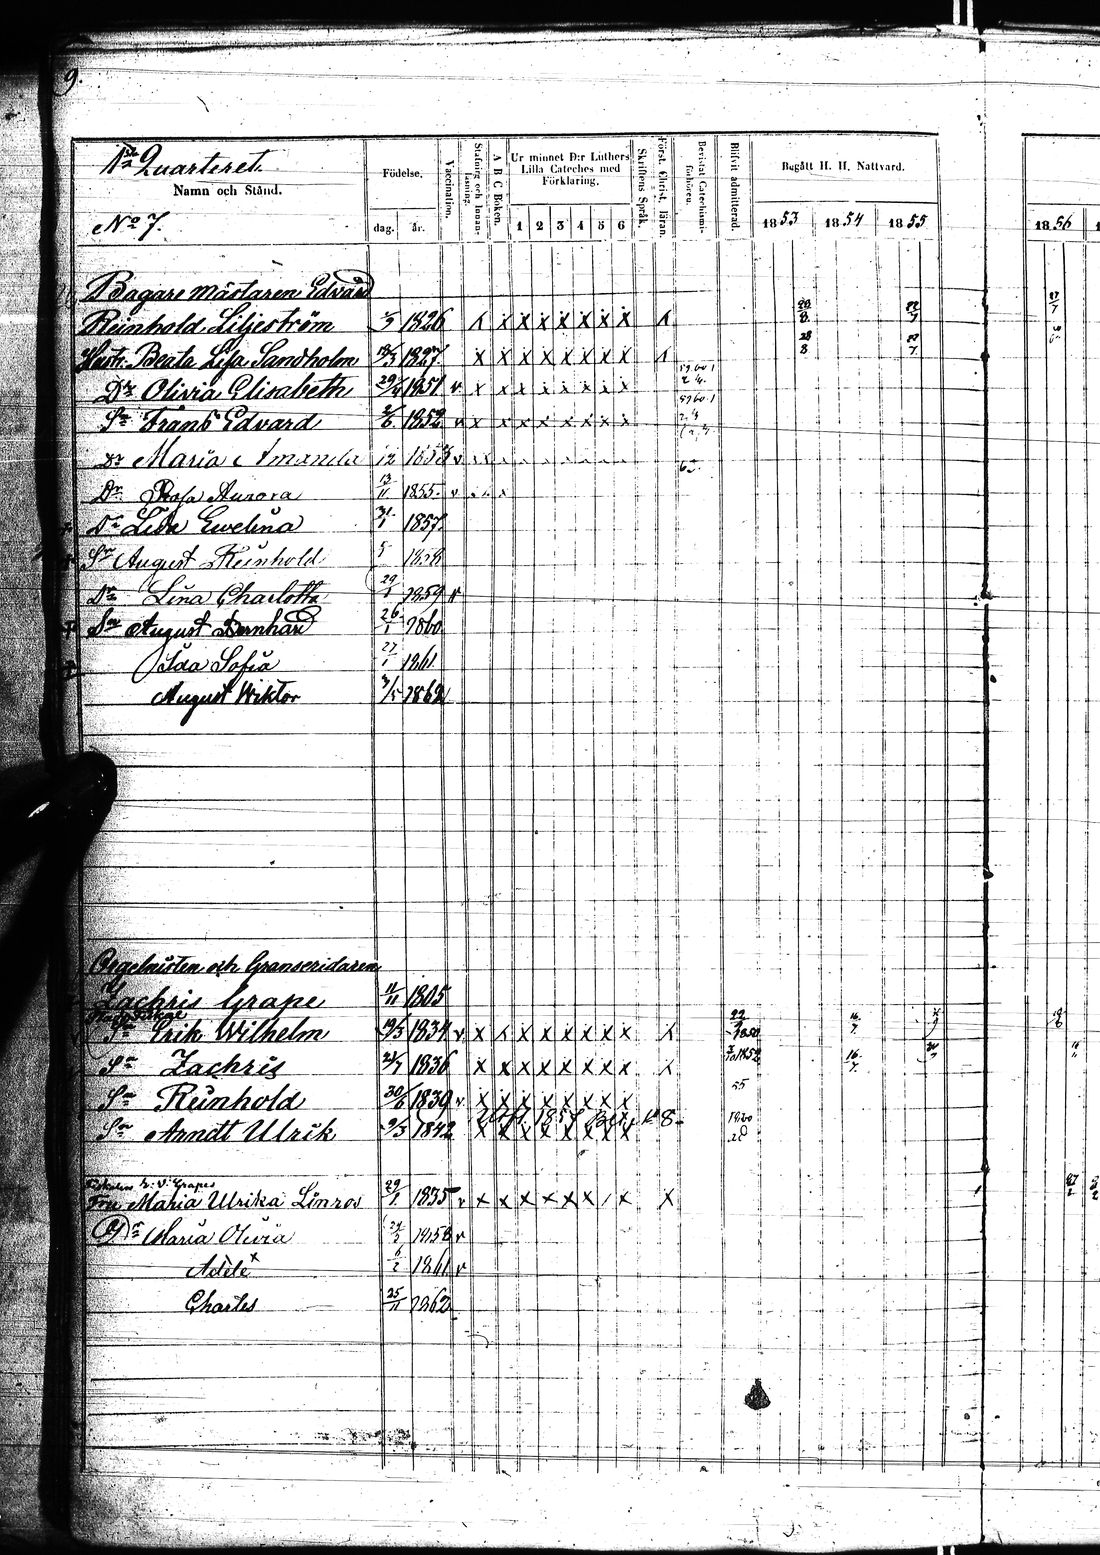 9.
1sta Quarteret.
Namn och Stånd.
No 7.
Födelse.
dag. år.
Vaccination.
Stafning och Innan-läsning.
A B C Boken.
Ur minnet D:r Luthers Lilla Cateches med Förklaring.
1 2 3 4 5 6
Skriftens Språk.
Förest. Christ. läran.
Bevistat Catechismi-förhören.
Blifvit admitterad.
Begått H. H. Nattvard.
1853 1854 1855 1856
Bagare mästaren Edvard
Reinhold Liljeström 1826 x x x x x x x
Hustr. Beata Lisa Sandholm 1827 x x x x x x x x
Dr Olivia Elisabeth 29/4 1851 v x x x x x x x x
Sn Frans Edvard 2/6 1852 v x x x x x x x x
Dr Maria Amanda 1853 v
Dr Rosa Aurora 13/11 1855 v
+ Dr Lida Ewelina 31/1 1857
+ Sn August Reinhold 1858
Dr Lina Charlotta 29/1 1859 v
+ Sn August Bernhard 26/1 1860
+ Ida Sofia 27/1 1861
August Wiktor 3/5 1862
Orgelnisten och Granseridaren
Zachris Grape 11/11 1805
Sn Erik Wilhelm 19/3 1834 v x x x x x x x x x
Sn Zachris 21/7 1836 x x x x x x x x x
Sn Reinhold 30/6 1839 v x x x x x x x x
Sn Arndt Ulrik 9/3 1842 x x x x x x x x
E. V. Grapes
Fru Maria Ulrika Linros 29/1 1835 v x x x x x x x x
Dr Maria Olivia 1858 v
Adèle 6/2 1861 v
Charles 25/11 1862